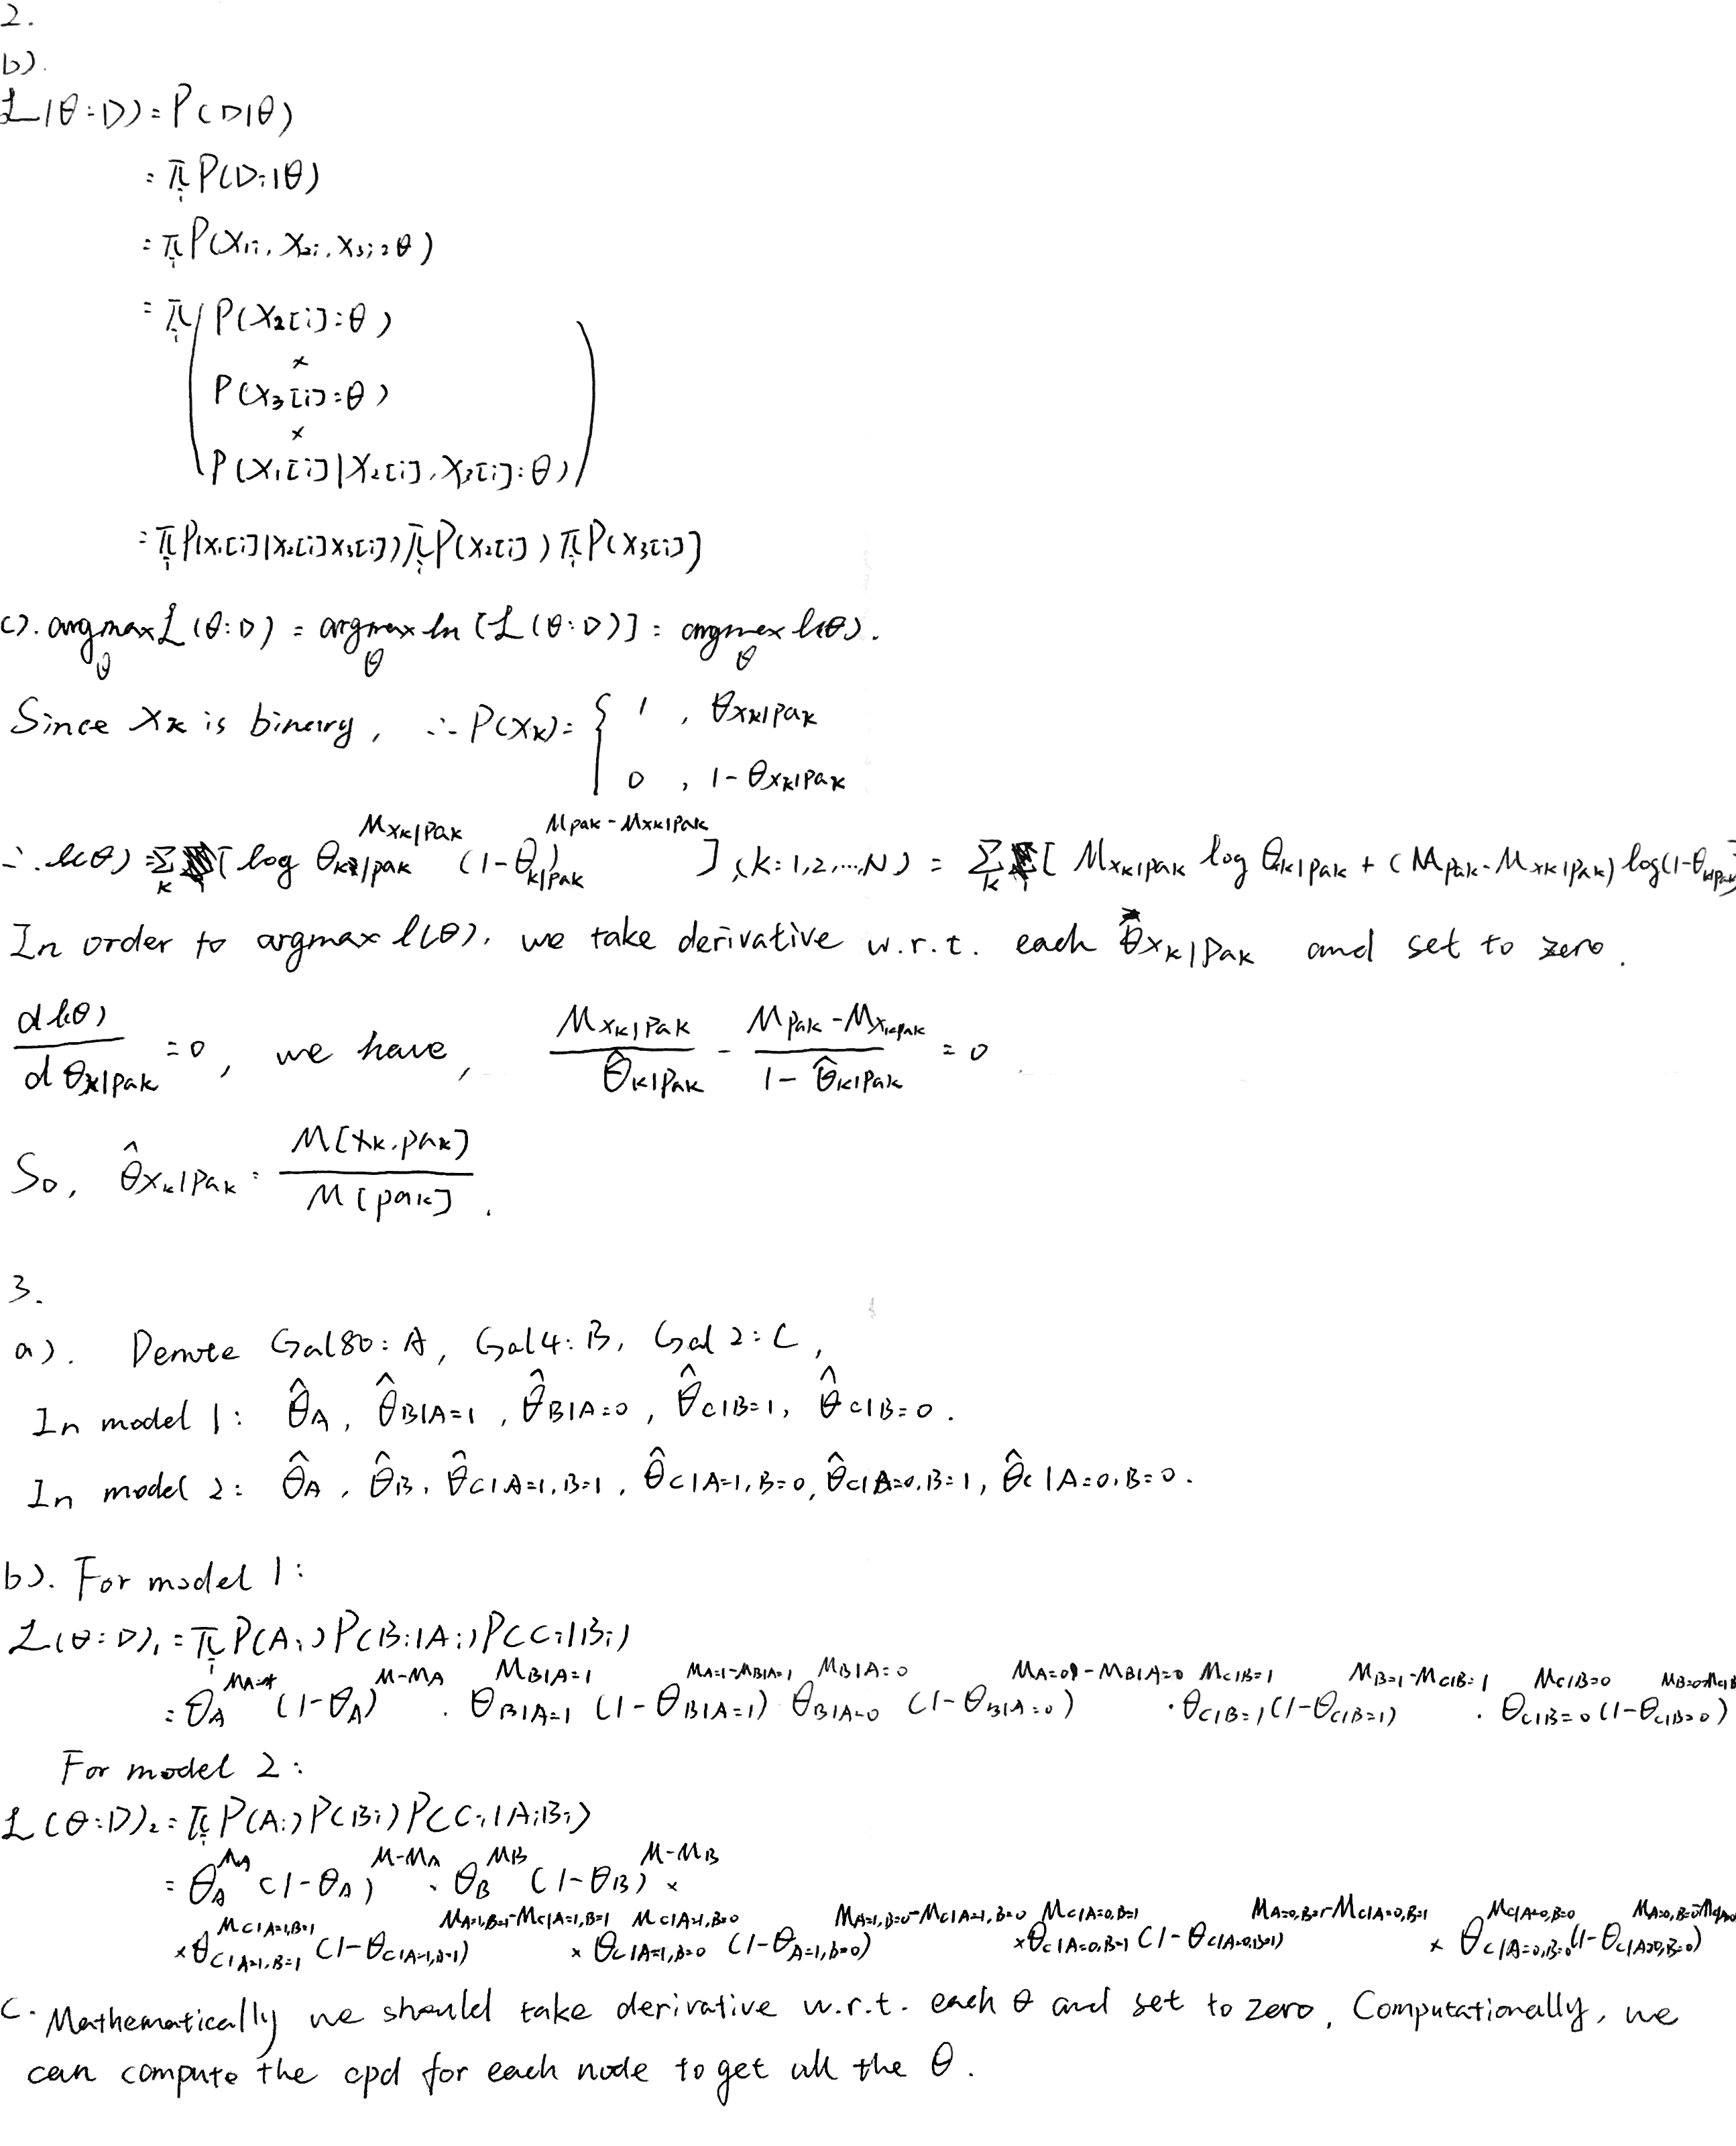 2.
b).
L(θ:D) = P(D|θ)
= π_i P(D_i|θ)
= π_i P(X_1i, X_2i, X_3i : θ)
= π_i ( P(X_2[i]:θ)
×
P(X_3[i]:θ)
×
P(X_1[i]|X_2[i], X_3[i]:θ) )
= π_i P(X_1[i]|X_2[i]X_3[i]) π_i P(X_2[i]) π_i P(X_3[i])
c). argmax_θ L(θ:D) = argmax_θ ln[L(θ:D)] = argmax_θ l(θ).
Since X_k is binary, ∴ P(X_k) = { 1, θ_{X_k|Pa_k}
0, 1-θ_{X_k|Pa_k}
∴ l(θ) = Σ_k [log θ_{k|pak}^{M_{Xk|pak}} (1-θ_{k|pak})^{M_{pak}-M_{Xk|pak}}], (k=1,2,...,N) = Σ_k [M_{Xk|pak} log θ_{k|pak} + (M_{pak}-M_{Xk|pak}) log(1-θ_{k|pak})]
In order to argmax l(θ), we take derivative w.r.t. each θ̂_{X_k|Pa_k} and set to zero.
dl(θ)/dθ_{X|pak} = 0, we have, M_{Xk|pak}/θ̂_{k|Pak} - (M_{pak}-M_{Xk|pak})/(1-θ̂_{k|Pak}) = 0
So, θ̂_{X_k|Pa_k} = M[X_k, pa_k]/M[pa_k].
3.
a). Denote Gal80: A, Gal4: B, Gal2: C,
In model 1: θ̂_A, θ̂_{B|A=1}, θ̂_{B|A=0}, θ̂_{C|B=1}, θ̂_{C|B=0}.
In model 2: θ̂_A, θ̂_B, θ̂_{C|A=1,B=1}, θ̂_{C|A=1,B=0}, θ̂_{C|A=0,B=1}, θ̂_{C|A=0,B=0}.
b). For model 1:
L(θ:D)_1 = π_i P(A_i)P(B_i|A_i)P(C_i|B_i)
= θ_A^{M_A} (1-θ_A)^{M-M_A} · θ_{B|A=1}^{M_{B|A=1}} (1-θ_{B|A=1})^{M_{A=1}-M_{B|A=1}} θ_{B|A=0}^{M_{B|A=0}} (1-θ_{B|A=0})^{M_{A=0}-M_{B|A=0}} · θ_{C|B=1}^{M_{C|B=1}} (1-θ_{C|B=1})^{M_{B=1}-M_{C|B=1}} · θ_{C|B=0}^{M_{C|B=0}} (1-θ_{C|B=0})^{M_{B=0}-M_{C|B}}
For model 2:
L(θ:D)_2 = π_i P(A_i)P(B_i)P(C_i|A_iB_i)
= θ_A^{M_A} (1-θ_A)^{M-M_A} · θ_B^{M_B} (1-θ_B)^{M-M_B} ×
× θ_{C|A=1,B=1}^{M_{C|A=1,B=1}} (1-θ_{C|A=1,B=1})^{M_{A=1,B=1}-M_{C|A=1,B=1}} × θ_{C|A=1,B=0}^{M_{C|A=1,B=0}} (1-θ_{A=1,B=0})^{M_{A=1,B=0}-M_{C|A=1,B=0}} × θ_{C|A=0,B=1}^{M_{C|A=0,B=1}} (1-θ_{C|A=0,B=1})^{M_{A=0,B=1}-M_{C|A=0,B=1}} × θ_{C|A=0,B=0}^{M_{C|A=0,B=0}} (1-θ_{C|A=0,B=0})^{M_{A=0,B=0}}
c. Mathematically we should take derivative w.r.t. each θ and set to zero. Computationally, we
can compute the cpd for each node to get all the θ.